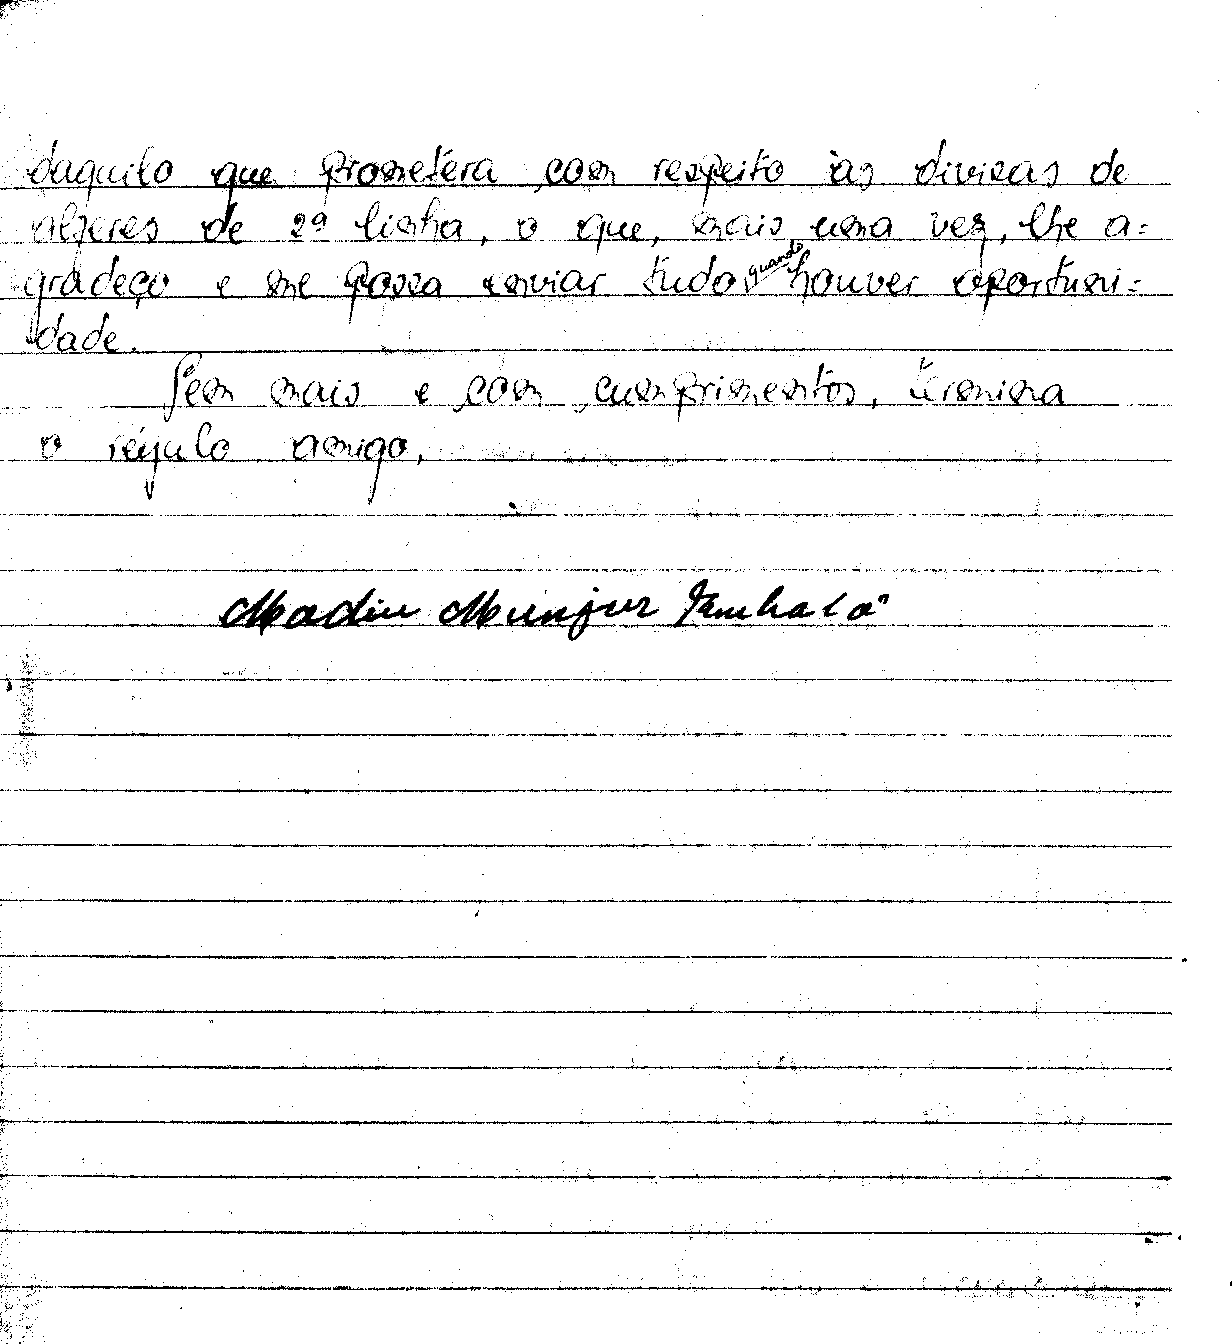 daquilo que prometera com respeito às divisas de
alferes de 2ª linha, o que, mais uma vez, lhe a=
gradeço e me possa enviar tudo quando houver oportuni=
dade.
Sem mais e com cumprimentos, termina
o régulo amigo,
Madiu Munjur Jambaló